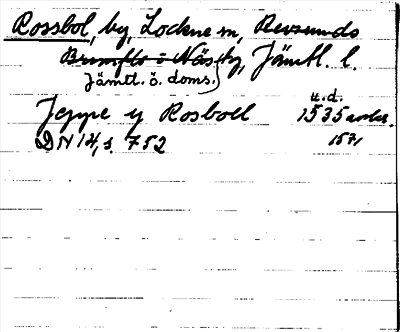 Rossbol, by, Lockne sn, Revsunds
Brunflo o Näs tg, Jämtl. l.
Jämtl. ö. doms.)
Jeppe y Rosboll u.d. 1535 avskr.
DN 14, s. 752 157,